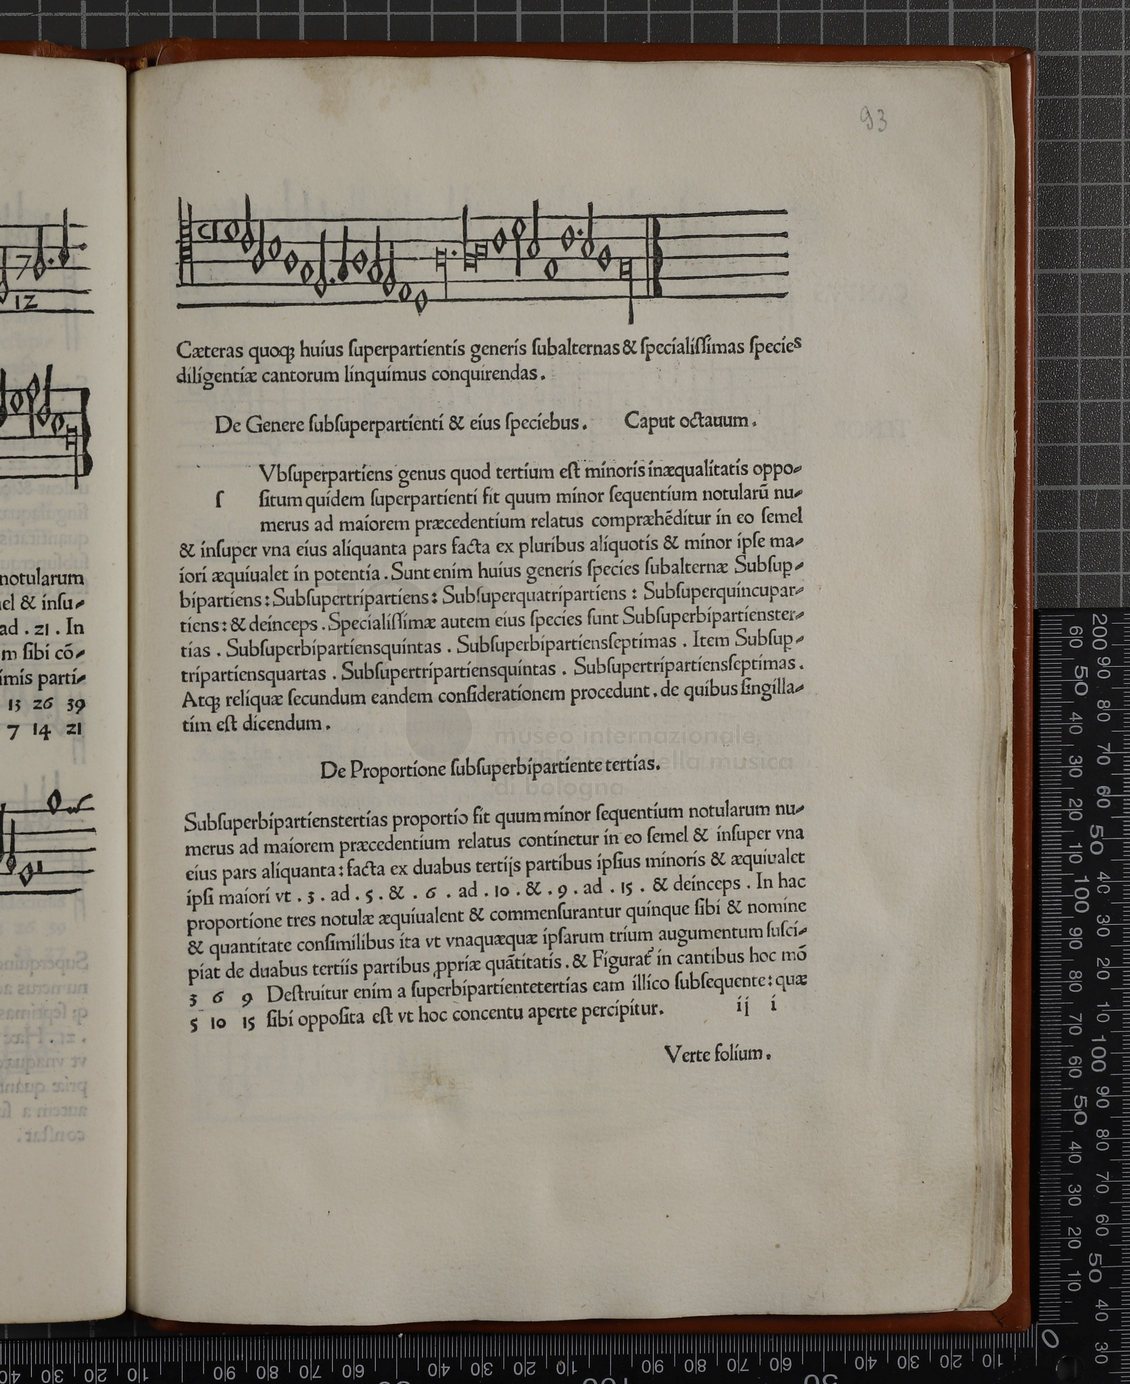 93
Cæteras quoq; huius ſuperpartientis generis ſubalternas & ſpecialiſſimas ſpecies
diligentiæ cantorum linquimus conquirendas.
De Genere ſubſuperpartienti & eius ſpeciebus. Caput octauum.
Vbſuperpartiens genus quod tertium eſt minoris inæqualitatis oppo-
ſ ſitum quidem ſuperpartienti fit quum minor ſequentium notularū nu-
merus ad maiorem præcedentium relatus compræhēditur in eo ſemel
& inſuper vna eius aliquanta pars facta ex pluribus aliquotis & minor ipſe ma-
iori æquiualet in potentia. Sunt enim huius generis ſpecies ſubalternæ Subſup-
bipartiens: Subſupertripartiens: Subſuperquatripartiens: Subſuperquincupar-
tiens: & deinceps. Specialiſſimæ autem eius ſpecies ſunt Subſuperbipartienster-
tias. Subſuperbipartiensquintas. Subſuperbipartiensſeptimas. Item Subſup-
tripartiensquartas. Subſupertripartiensquintas. Subſupertripartiensſeptimas.
Atq; reliquæ ſecundum eandem conſiderationem procedunt. de quibus ſingilla-
tim eſt dicendum.
De Proportione ſubſuperbipartiente tertias.
Subſuperbipartienstertias proportio fit quum minor ſequentium notularum nu-
merus ad maiorem præcedentium relatus continetur in eo ſemel & inſuper vna
eius pars aliquanta: facta ex duabus tertijs partibus ipſius minoris & æquiualet
ipſi maiori vt. 3. ad. 5. &. 6. ad. 10. &. 9. ad. 15. & deinceps. In hac
proportione tres notulæ æquiualent & commenſurantur quinque ſibi & nomine
& quantitate conſimilibus ita vt vnaquæquæ ipſarum trium augumentum ſuſci-
piat de duabus tertiis partibus ꝓpriæ quātitatis. & Figurat̄ in cantibus hoc mō
3 6 9 Deſtruitur enim a ſuperbipartientetertias eam illico ſubſequente: quæ
5 10 15 ſibi oppoſita eſt vt hoc concentu aperte percipitur. ij i
Verte folium.
12
notularum
el & inſu-
ad. 21. In
m ſibi cō-
imis parti-
13 26 39
7 14 21
museo internazionale
della musica
di bologna